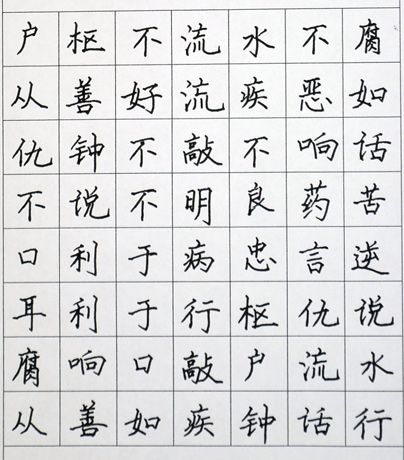 户枢不流水不腐
从善好流疾恶如
仇钟不敲不响话
不说不明良药苦
口利于病忠言逆
耳利于行枢仇说
腐响口敲户流水
从善如疾钟话行